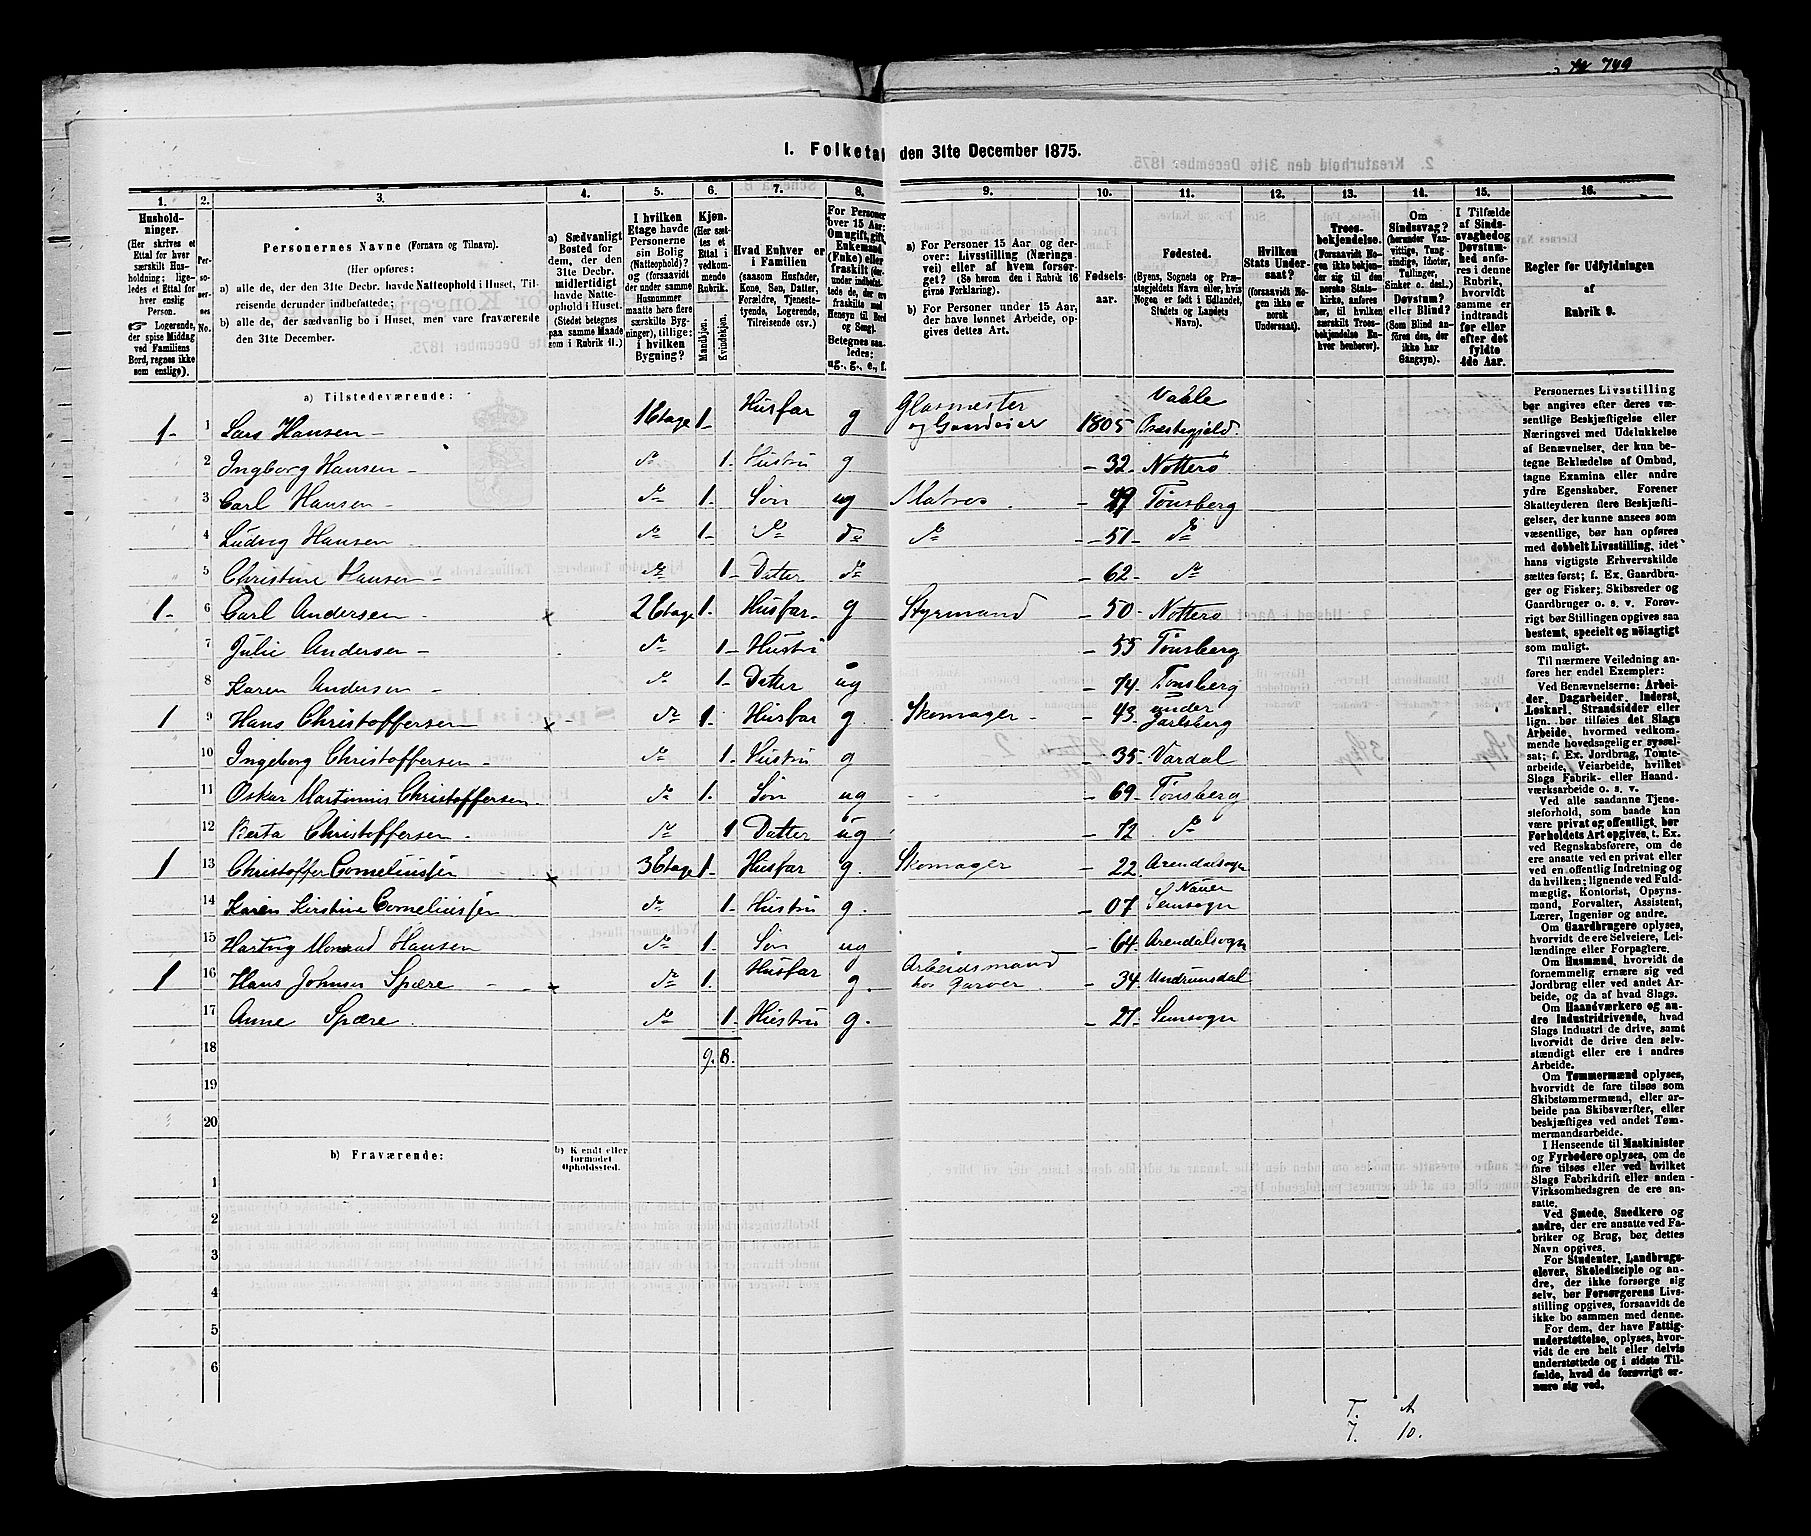 749
I. Folketal den 31te December 1875.
1. 2. 3. 4. 5. 6. 7. 8. 9. 10. 11. 12. 13. 14. 15. 16.
Hushold-
ninger.
(Her skrives et
Ettal for hver
særskilt Hus-
holdning; lige-
ledes et Ettal for
hver enslig
Person.
☞ Logerende,
der spise Middag
ved Familiens
Bord, regnes ikke
som enslige).
Per-
so-
ner-
nes
No.
Personernes Navne (Fornavn og Tilnavn).
(Her opføres:
a) alle de, der den 31te Decbr. havde Natteophold i Huset, Til-
reisende derunder indbefattede;
b) alle de, der sædvanlig bo i Huset, men vare fraværende
den 31te December.
a) Sædvanligt
Bosted for
dem, der den
31te Decbr.
midlertidigt
havde Natte-
ophold i Huset.
(Stedet betegnes
paa samme Maade
som i Rubrik 11.)
I hvilken
Etage havde
Personerne
sin Bolig
(Natteophold)?
og (forsaavidt
der under samme
Husnummer
maatte høre flere
særskilte Byg-
ninger), tillige:
i hvilken
Bygning?
Kjøn.
(Her sæt-
tes et
Ettal i
vedkom-
mende
Rubrik.
Mandkjøn.
Kvindekjøn.
Hvad Enhver er
i Familien
(saasom Husfader,
Kone, Søn, Datter,
Forældre, Tjeneste-
tyende, Logerende,
Tilreisende osv.)
For Personer
over 15 Aar:
Om ugift, gift,
Enkemand
(Enke) eller
fraskilt
Betegnes saa-
ledes:
ug., g., e., f.
a) For Personer 15 Aar og der-
over: Livsstilling (Nærings-
vei) eller af hvem forsør-
get? (Se herom den i Rubrik 16
givne Forklaring.)
b) For Personer under 15 Aar,
der have lønnet Arbeide, op-
gives dettes Art.
Fødsels-
aar.
Fødested.
(Byens, Sognets og Præ-
stegjeldets Navn eller, hvis
Nogen er født i Udlandet,
Stedets og Landets
Navn).
Hvilken
Stats Under-
saat?
(forsaavidt No-
gen ikke er
norsk
Undersaat).
Troes-
bekjendelse.
(Forsaavidt No-
gen ikke bekjen-
der sig til den
norske Stats-
kirke, anføres
her, til hvilken
særskilt Troes-
bekjendelse En-
hver henhører).
Om
Sindssvag?
(herunder Van-
vittige, Tung-
sindige, Idioter,
Tullinger,
Sinker o. desl.)
Døvstum?
eller Blind?
(Som Blind an-
føres den, der
ikke har
Gangsyn).
I Tilfælde
af Sinds-
svaghed og
Døvstum-
hed anfø-
res i denne
Rubrik,
hvorvidt
samme er
indtraadt
før eller
efter det
fyldte
4de Aar.
Regler for Udfyldningen
af
Rubrik 9.
a) Tilstedeværende:
1- 1 Lars Hansen - 1 Etage 1- Husfar g Glasmester og Gaardeier 1805 Vaale Præstegjeld.
2 Ingborg Hansen - do 1- Hustru g - 32- Nøtterø
3 Carl Hansen - do 1- Søn ug Matros - 49- Tønsberg
4 Ludvig Hansen do 1- do do do - 51- do
5 Christine Hansen - do 1- Datter do - 62- do
1- 6 Carl Andersen - x 2 Etage 1- Husfar- g Styrmand - 50- Nøtterø
7 Julie Andersen - do 1- Hustru - 55 Tønsberg
8 Karen Andersen - do 1- Datter ug - 74- Tønsberg
1 9 Hans Christoffersen x do 1- Husfar g. Skomager - - 43- under Jarlsberg
10 Ingeborg Christoffersen - do 1- Hustru g - 35- Vardal
11 Oskar Martinius Christoffersen. do 1- Søn ug - 69- Tønsberg
12 Berta Christoffersen - do 1 Datter ug - 72 do
1 13 Christoffer Corneliussen x 3 Etage 1- Husfar g. Skomager - 22- Arendalsogn
14 Karen Kirstine Corneliussen do 1- Hustru g. - 07 Semsogn
15 Hartvig Monrad Hansen do 1- Søn ug - 64- Arendalsogn
1 16 Hans Johnsen Spære - x do 1. Husfar g. Arbeidsmand hos Garver - 34 Undrumsdal
17 Anne Spære. do 1- Hustru g. - 21- Semsogn
18 9. 8.
19
20
b) Fraværende:
b) Kjendt eller
formodet
Opholdssted.
1
2
3
4
5
6
Personernes Livsstilling
bør angives efter deres væ-
sentlige Beskjæftigelse eller
Næringsvei med Udelukkelse
af Benævnelser, der kun be-
tegne Beklædelse af Ombud,
tagne Examina eller andre
ydre Egenskaber. Forener
Skatteyderen flere Beskjæfti-
gelser, der kunne ansees som
væsentlige, bør han opføres
med dobbelt Livsstilling, idet
hans vigtigste Erhvervskilde
sættes først; f. Ex. Gaardbru-
ger og Fisker; Skibsreder og
Gaardbruger o. s. v. Forøv-
rigt bør Stillingen opgives saa
bestemt, specielt og nöiagtigt
som muligt.
Til nærmere Veiledning an-
føres her endel Exempler:
Ved Benævnelserne: Arbei-
der, Dagarbeider, Inderst,
Løskarl, Strandsidder eller
lign. bør tilføies det Slags
Arbeide, hvormed vedkom-
mende hovedsagelig er syssel-
sat; f. Ex. Jordbrug, Tomte-
arbeide, Veiarbeide, hvilket
Slags Fabrik- eller Haand-
værksarbeide o. s. v.
Ved alle saadanne Tjene-
steforhold, som baade kan
være privat og offentligt, bør
Forholdets Art opgives, t. Ex.
ved Regnskabsførere, om de
ere ansatte ved en privat eller
ved en offentlig Indretning og
da hvilken; lignende ved Fuld-
mægtig, Kontorist, Opsyns-
mand, Forvalter, Assistent,
Lærer, Ingeniør og andre.
Om Gaardbrugere oplyses,
hvorvidt de ere Selveiere, Lei-
lændinge eller Forpagtere.
Om Husmænd, hvorvidt de
fornemmelig ernære sig ved
Jordbrug eller ved andet Ar-
beide, og da af hvad Slags.
Om Haandværkere og an-
dre Industridrivende, hvad
Slags Industri de drive, samt
hvorvidt de drive den selv-
stændigt eller ere i andres
Arbeide.
Om Tømmermænd oplyses,
hvorvidt de fare tilsøs som
Skibstømmermænd, eller ar-
beide paa Skibsværfter, eller
beskjæftiges ved andet Tøm-
mermandsarbeide.
I Henseende til Maskinister
og Fyrbødere oplyses, om de
fare tilsøs eller ved hvilket
Slags Fabrikdrift eller anden
Virksomhedsgren de ere an-
satte.
Ved Smede, Snedkere og
andre, der ere ansatte ved Fa-
briker og Brug, bør dettes
Navn opgives.
For Studenter, Landbrugs-
elever, Skoledisciple og an-
dre, der ikke forsørge sig
selv, bør Forsørgerens Livs-
stilling opgives, forsaavidt de
ikke bo sammen med denne.
For dem, der have Fattig-
understøttelse, oplyses, hvor-
vidt de ere helt eller delvis
understøttede og i sidste Til-
fælde, hvad de forøvrigt er-
nære sig ved.
T. A.
7. 10.